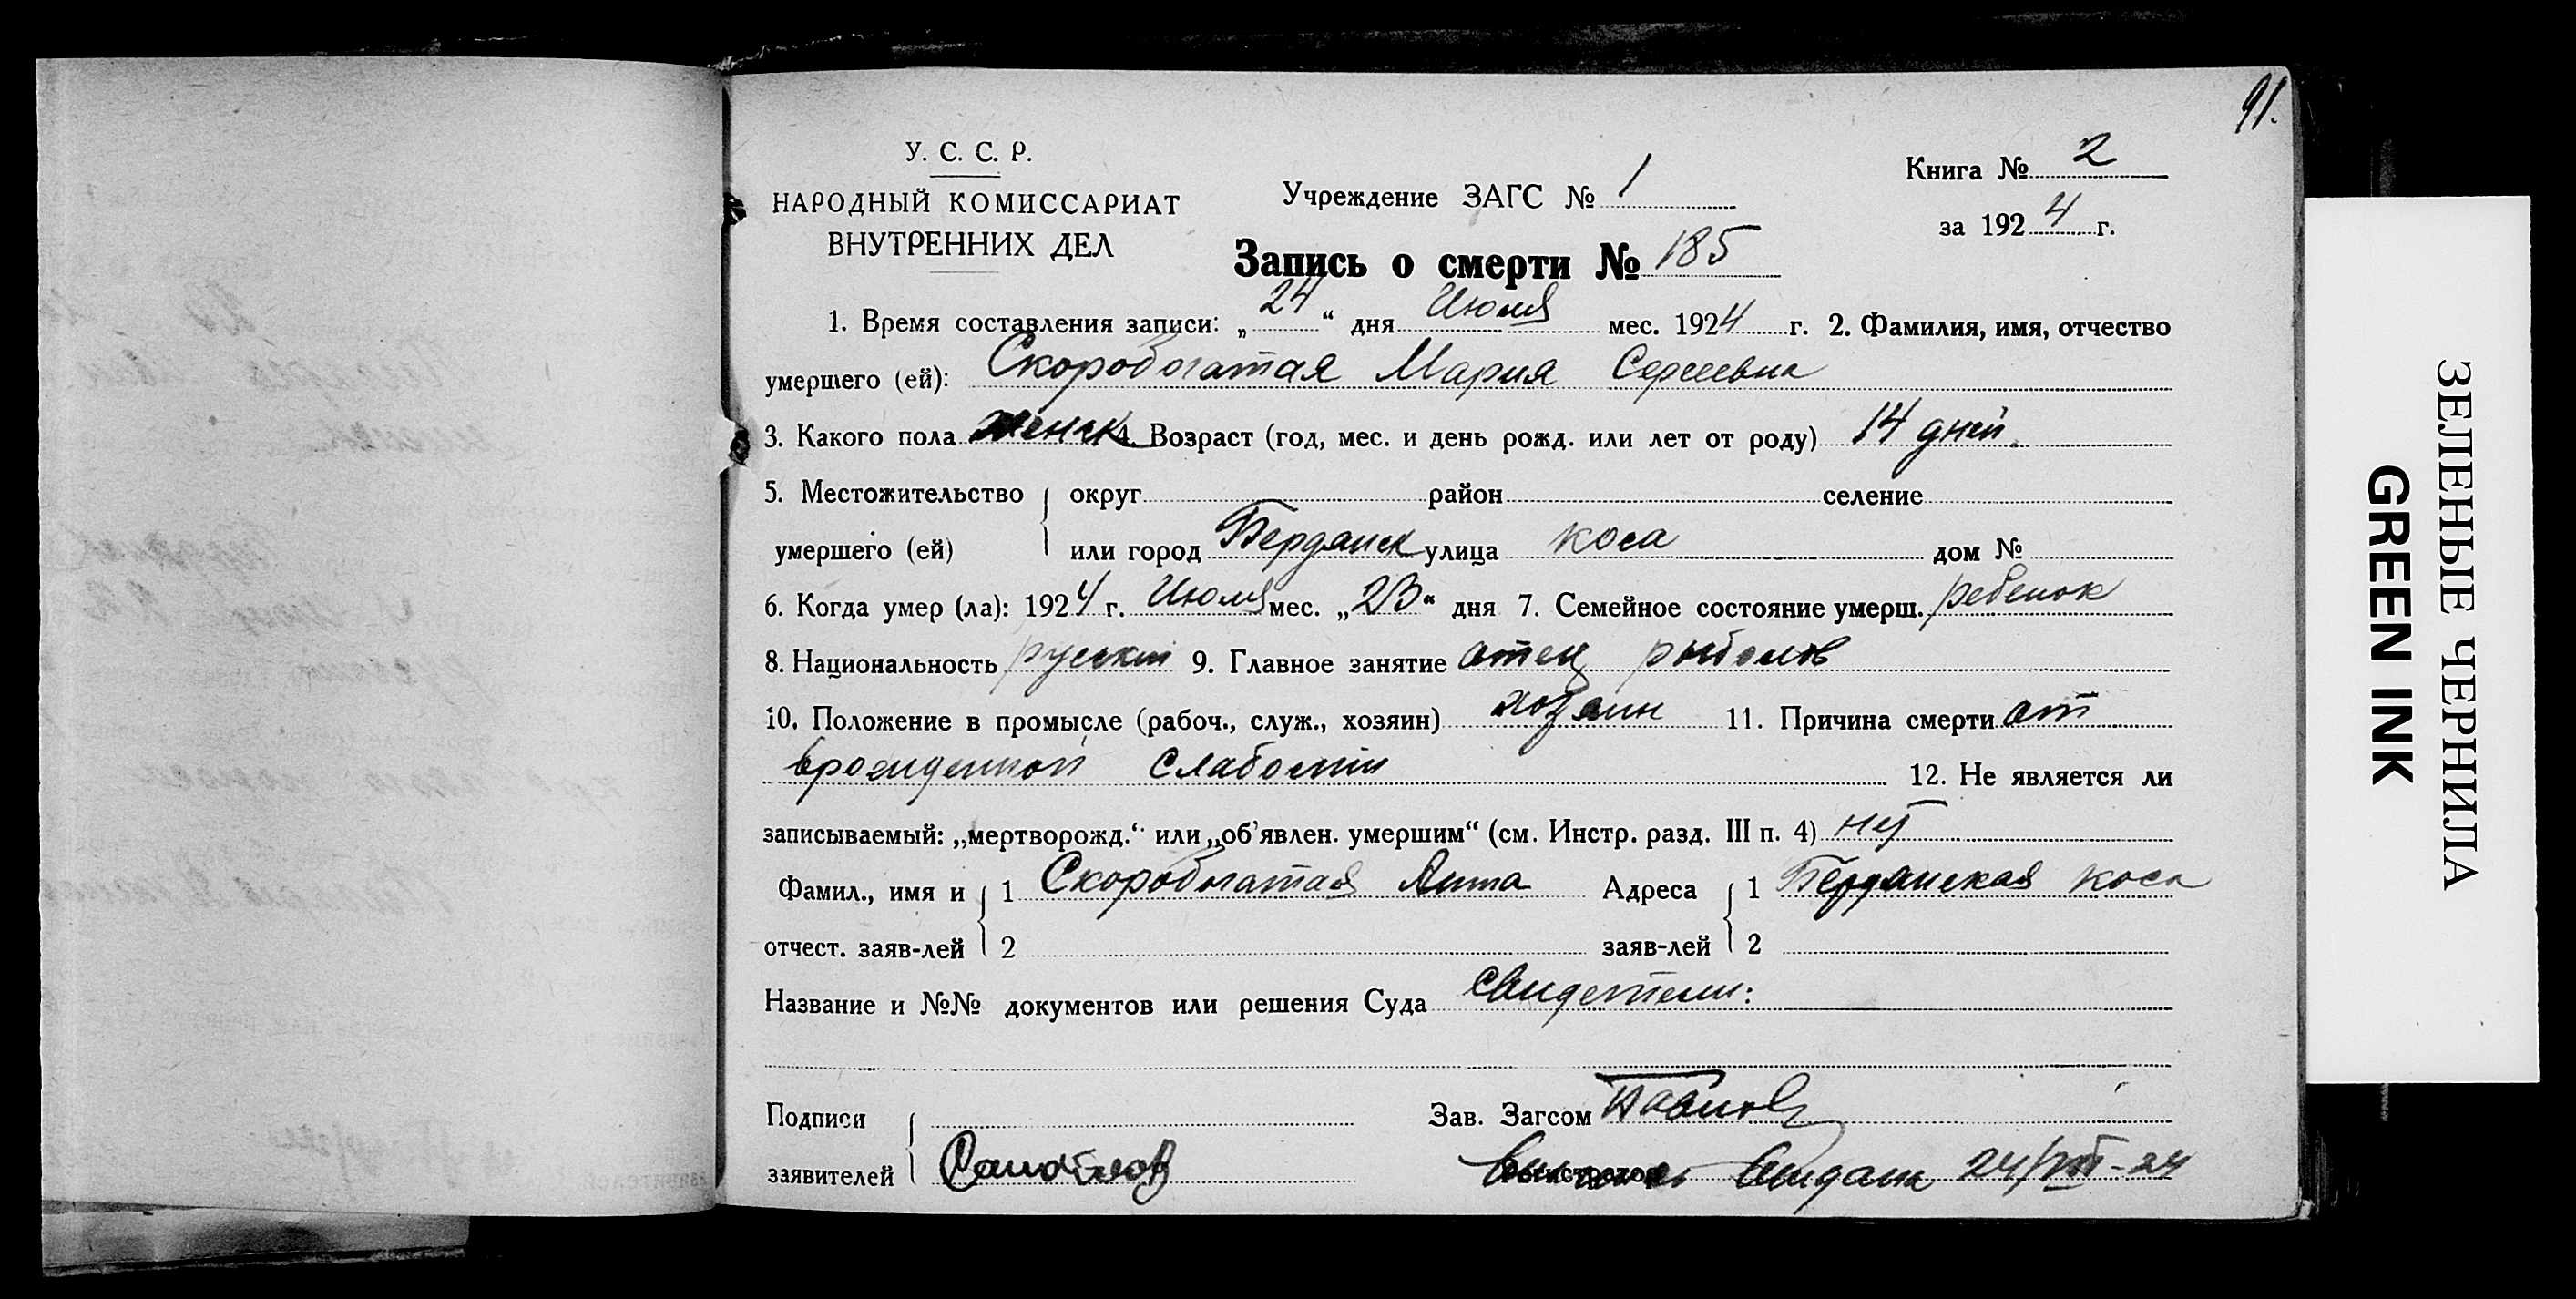 91.
У. С. С. Р.
НАРОДНЫЙ КОМИССАРИАТ
ВНУТРЕННИХ ДЕЛ
Учреждение ЗАГС № 1
Книга № 2
за 1924 г.
Запись о смерти № 185
1. Время составления записи: „24“ дня Июля мес. 1924 г. 2. Фамилия, имя, отчество
умершего (ей): Скоробогатая Мария Сергеевна
3. Какого пола женск 4. Возраст (год, мес. и день рожд. или лет от роду) 14 дней.
5. Местожительство округ район селение
умершего (ей) или город Бердянск улица коса дом №
6. Когда умер (ла): 1924 г. Июля мес. „23“ дня 7. Семейное состояние умерш. ребенок
8. Национальность русский 9. Главное занятие отец рыболов
10. Положение в промысле (рабоч., служ., хозяин) хозяин 11. Причина смерти от
врожденной слабости 12. Не является ли
записываемый: „мертворожд.“ или „об’явлен. умершим“ (см. Инстр. разд. III п. 4) нет
Фамил., имя и 1 Скоробогатая Анна Адреса 1 Бердянская коса
отчест. заяв-лей 2 заяв-лей 2
Название и №№ документов или решения Суда свидетели:
Подписи Зав. Загсом
заявителей Регистратор 24/VII-24
ЗЕЛЕНЫЕ ЧЕРНИЛА
GREEN INK